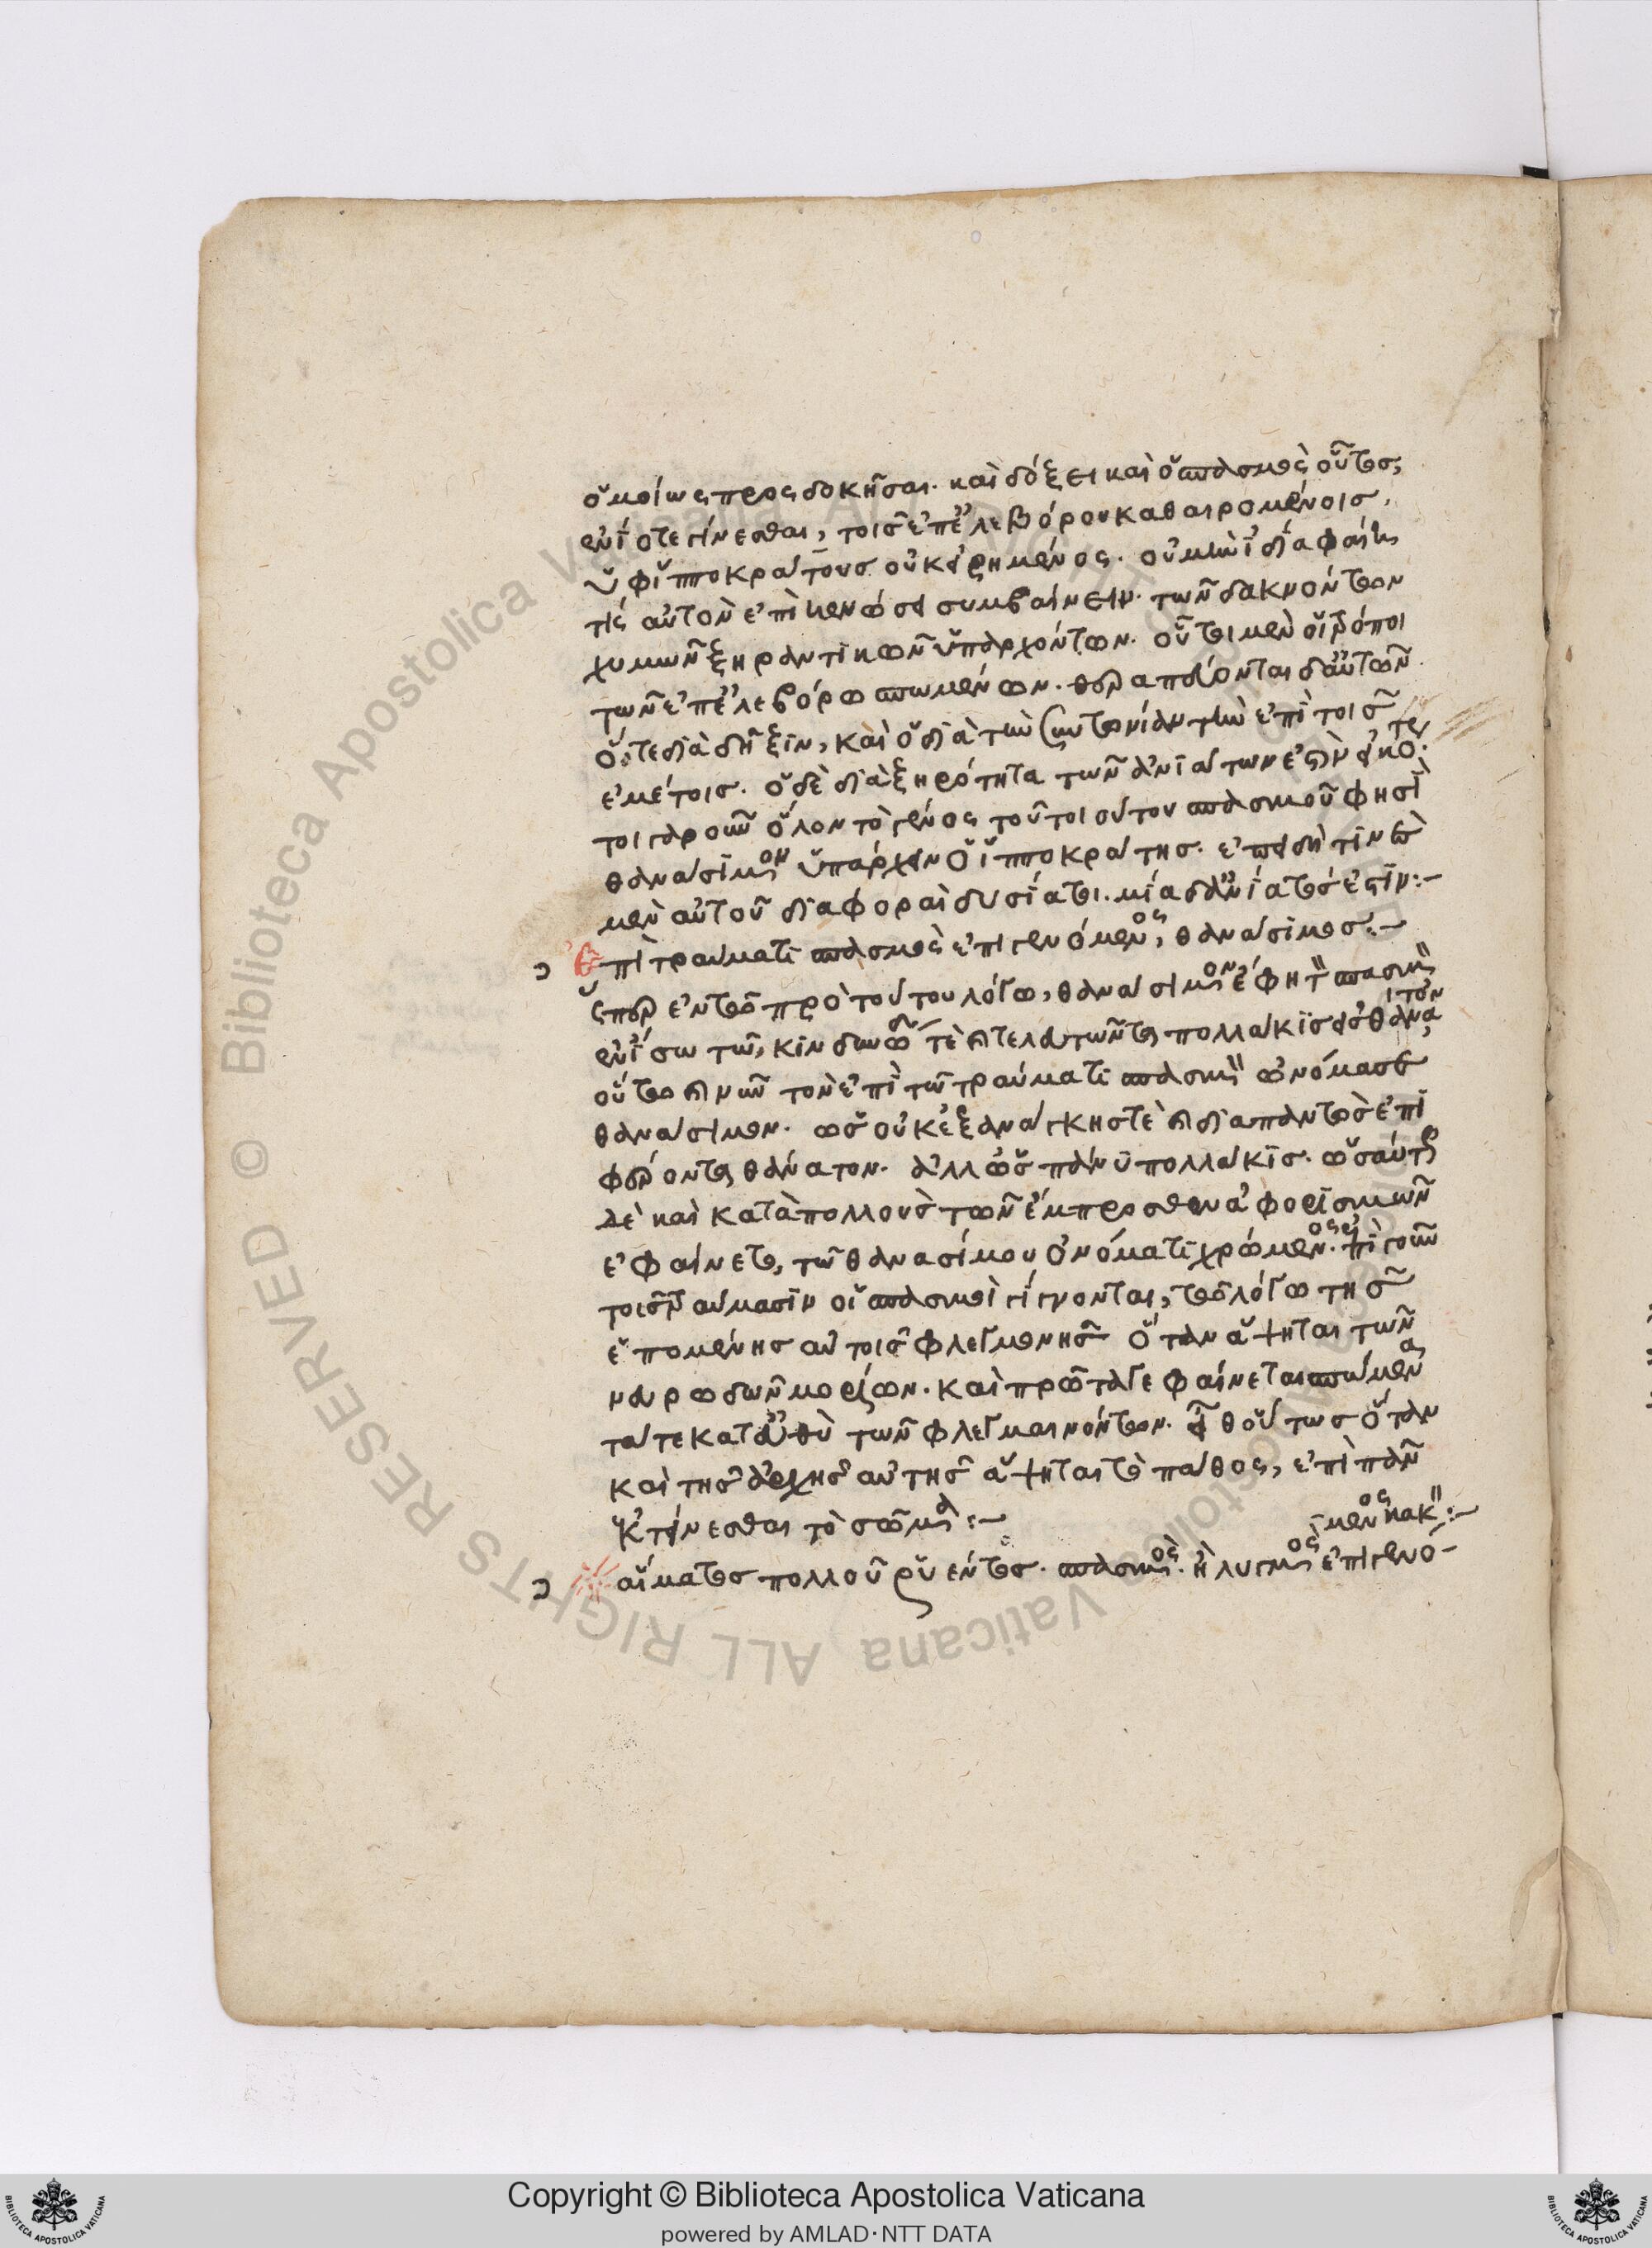 ὁμοίως προςδοκῆσαι. καὶ δόξει καὶ ὁ σπασμὸς οὗτος,
ἐνίοτε γίνεσθαι, τοῖς ἐπ ἐλεβόρου καθαιρομένοις,
ὑφ ἱπποκράτους οὐκ εἰρημένος. οὐ μὴν ἰδία φαίη
τίς αὐτὸν ἐπὶ κενώσει συμβαίνειν. τῶν δακνόντων
χυμῶν ξηραντικῶν ὑπαρχόντων. οὗτοι μὲν οἱ τρόποι
τῶν ἐπ ἐλεβόρω σπωμένων. θεραπεύονται δ αὐτῶν
ὅ, τε διὰ δῆξιν, καὶ ὁ διὰ τὴν συντονίαν τὴν ἐπὶ τοῖς
ἐμέτοις. ὁ δὲ διὰ ξηρότητα τῶν ἀνιάτων ἐστὶν εἰκό
τως
τοιγαροῦν ὅλον τὸ γένος τοῦ τοιούτου σπασμοῦ φησὶ
θανάσιμον ὑπάρχειν ὁ ἱπποκράτης. ἐπειδὴ τινὲς
μὲν αὐτοῦ διαφοραὶ δυσίατοι. μία δ ἀνίατός ἐστίν:-
Ἐπὶ τρώματι σπασμὸς ἐπιγενόμενος, θανάσιμος:-
ὥσπερ ἐν τῶ πρὸ τούτου λόγω, θανάσιμον ἔφη τὸν σπασμὸν
ἐν ἴσω τῶ, κινδυνώδη τὲ καὶ τελευτῶντα πολλάκις εἰς θάνατον
οὕτω καὶ νῦν τὸν ἐπὶ τῶ τραύματι σπασμὸν ὠνόμασε
θανάσιμον. ὡς οὐκ ἐξανάγκης τὲ καὶ διαπαντὸς ἐπι
φέροντα θάνατον. ἀλλ ὡς πάνυ πολλάκις. ὡσαύτως
δὲ καὶ κατὰ πολλοὺς τῶν ἔμπροσθεν ἀφορισμῶν
ἐφαίνετο, τῶ θανασίμου ὀνόματι χρώμενος. ἐπὶ γοῦν
τοῖς τραύμασιν οἱ σπασμοὶ γίγνονται, τῶ λόγω τῆς
ἑπομένης αὐτοῖς φλεγμονῆς ὅταν ἅψηται τῶν
νευρωδῶν μορίων. καὶ πρῶτά γε φαίνεται σπώμενα
τά τε κατ εὐθὺ τῶν φλεγμαινόντων. εἶθ οὕτως ὅταν
καὶ τῆς ἀρχῆς αὐτῆς ἅψηται τὸ πάθος, ἐπὶ πᾶν
ἐκτείνεσθαι τὸ σῶμα :-
αἵματος πολλοῦ ῥυέντος. σπασμὸς. ἢ λυγμὸς ἐπιγενό-
μενος κακὸν:-